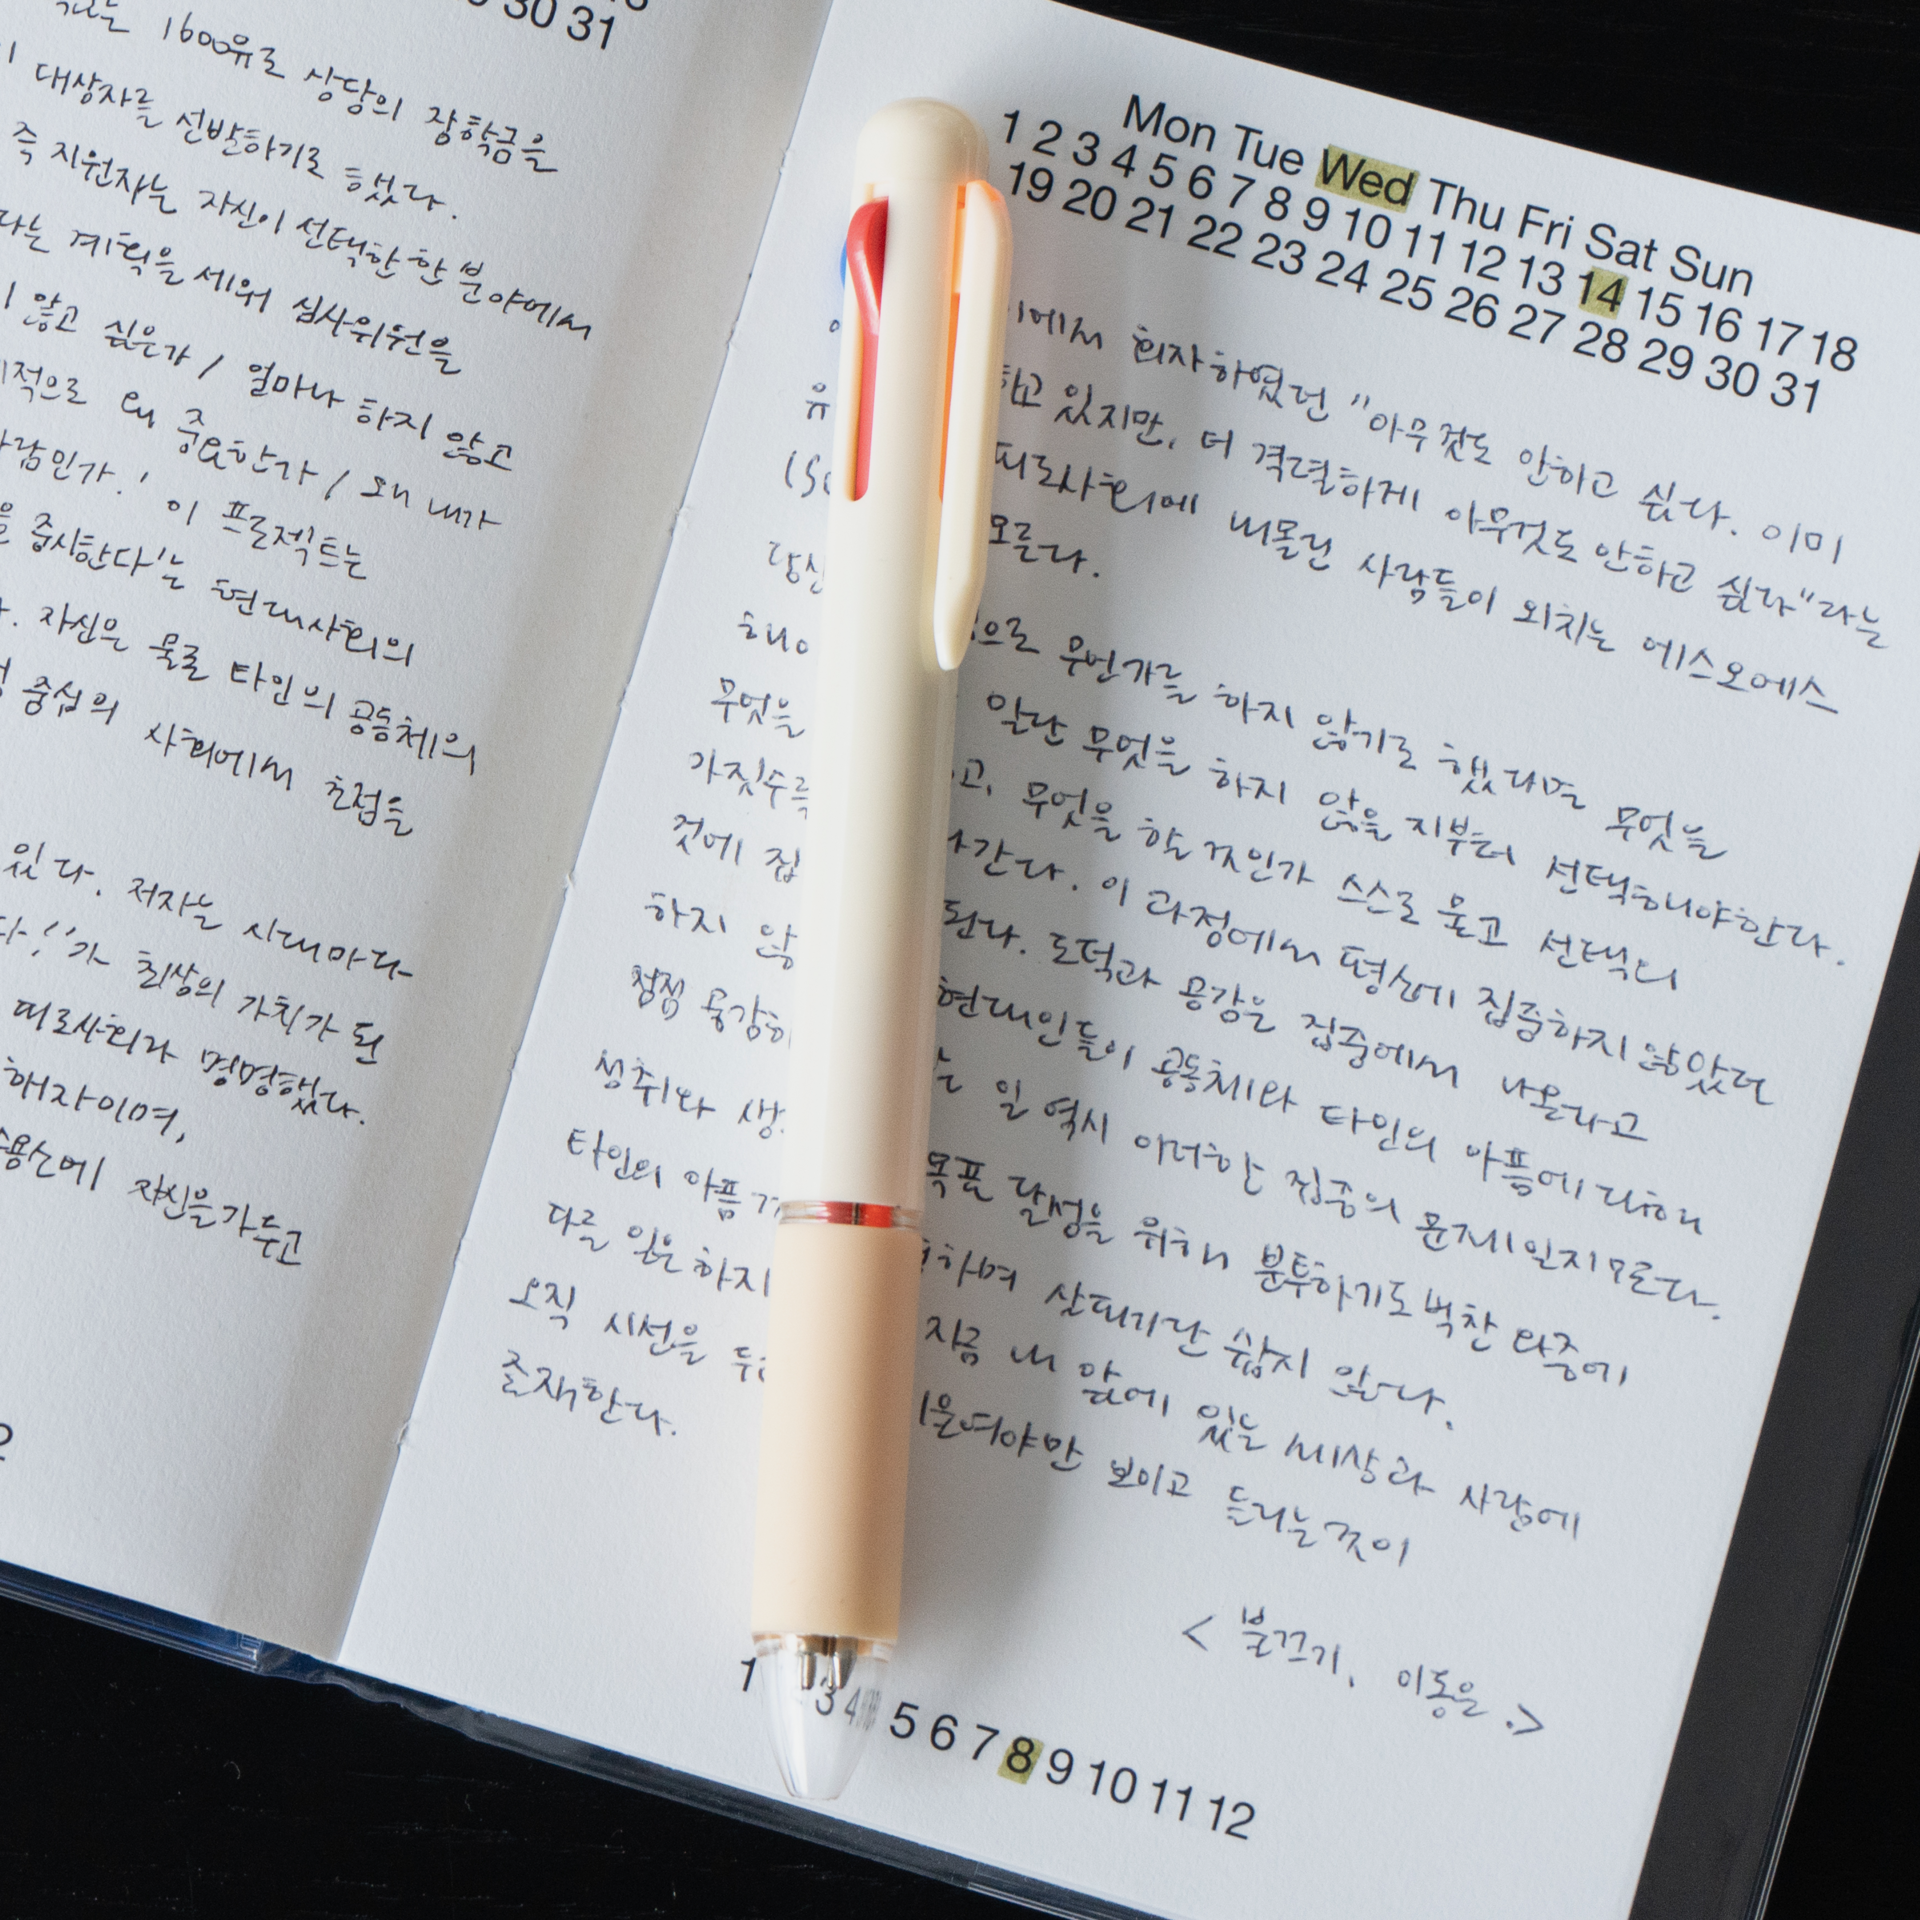 30 31
1600유로 상당의 장학금을
대상자를 선발하기로 했다.
즉 지원자는 자신이 선택한 한 분야에서
다는 계획을 세워 심사위원을
않고 싶은가 / 얼마나 하지 않고
적으로 왜 중요한가 / 왜 내가
사람인가.' 이 프로젝트는
을 중시한다'는 현대사회의
. 자신은 물론 타인의 공동체의
중심의 사회에서 초점을
있다. 저자는 시대마다
다!'가 최상의 가치가 된
피로사회라 명명했다.
해자이며,
수용소에 자신을 가두고
2
Mon Tue Wed Thu Fri Sat Sun
1 2 3 4 5 6 7 8 9 10 11 12 13 14 15 16 17 18
19 20 21 22 23 24 25 26 27 28 29 30 31
에서 회자하였던 "아무것도 안하고 싶다. 이미
유 하고 있지만, 더 격렬하게 아무것도 안하고 싶다"라는
피로사회에 내몰린 사람들이 외치는 에스오에스
모른다.
당신 으로 무언가를 하지 않기로 했다면 무엇을
해야 일단 무엇을 하지 않을 지부터 선택해야한다.
무엇을 고, 무엇을 할 것인가 스스로 묻고 선택의
가짓수를 나간다. 이 과정에서 평소에 집중하지 않았던
것에 집 된다. 도덕과 공감은 집중에서 나온다고
하지 않 현대인들이 공동체와 타인의 아픔에 대해
점점 공감하 는 일 역시 이러한 집중의 문제일지 모른다.
성취와 생 목표 달성을 위해 분투하기도 벅찬 와중에
타인의 아픔 하며 살피기란 쉽지 않다.
다른 일은 하지 지금 내 앞에 있는 세상과 사람에
오직 시선을 두 기울여야만 보이고 들리는 것이
존재한다.
< 불끄기, 이동은 .>
1 3 4 5 6 7 8 9 10 11 12